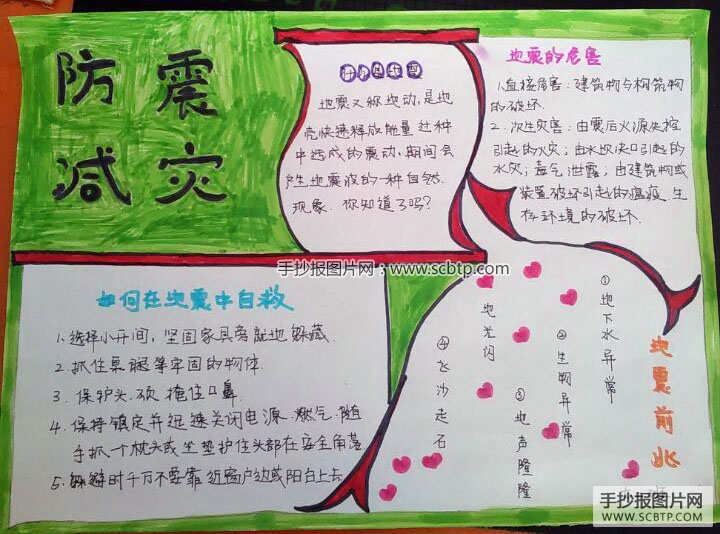 防震
减灾
什么是地震
地震又称地动,是地
壳快速释放能量过程
中造成的震动,期间会
产生地震波的一种自然
现象.你知道了吗?
地震的危害
1.直接危害:建筑物与构筑物
的破坏.
2.次生灾害:由震后火源失控
引起的火灾;由水坝决口引起的
水灾;毒气泄露;由建筑物或
装置破坏引起的瘟疫.生
存环境的破坏.
手抄报图片网:www.scbtp.com
如何在地震中自救
1.选择小开间,坚固家具旁就地躲藏.
2.抓住桌腿等牢固的物体.
3.保护头.颈,掩住口鼻.
4.保持镇定并迅速关闭电源.燃气.随
手抓一个枕头或坐垫护住头部在安全角落
5.躲避时千万不要靠近窗户边或阳台上去
地震前兆
①地下水异常
②生物异常
③地声隆隆
地光闪
④飞沙走石
手抄报图片网
WWW.SCBTP.COM